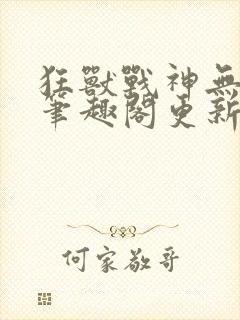 狂獸戰神無
筆趣閣更新
何家敬哥